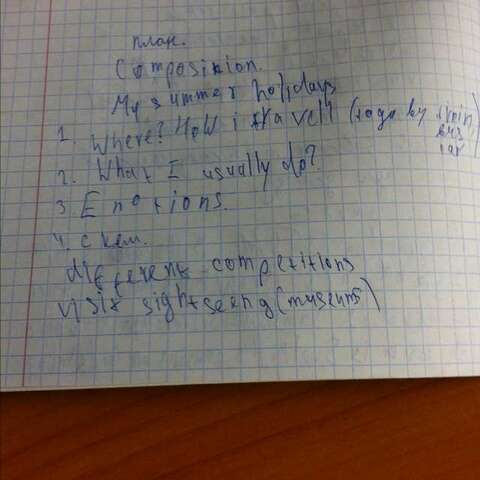 план.
Composition.
My summer holidays
1. Where? How i travell (to go by train
bus
car
2. What I usually do?
3. Emotions.
4. с кем.
different competitions
visit sightseeng (museums)